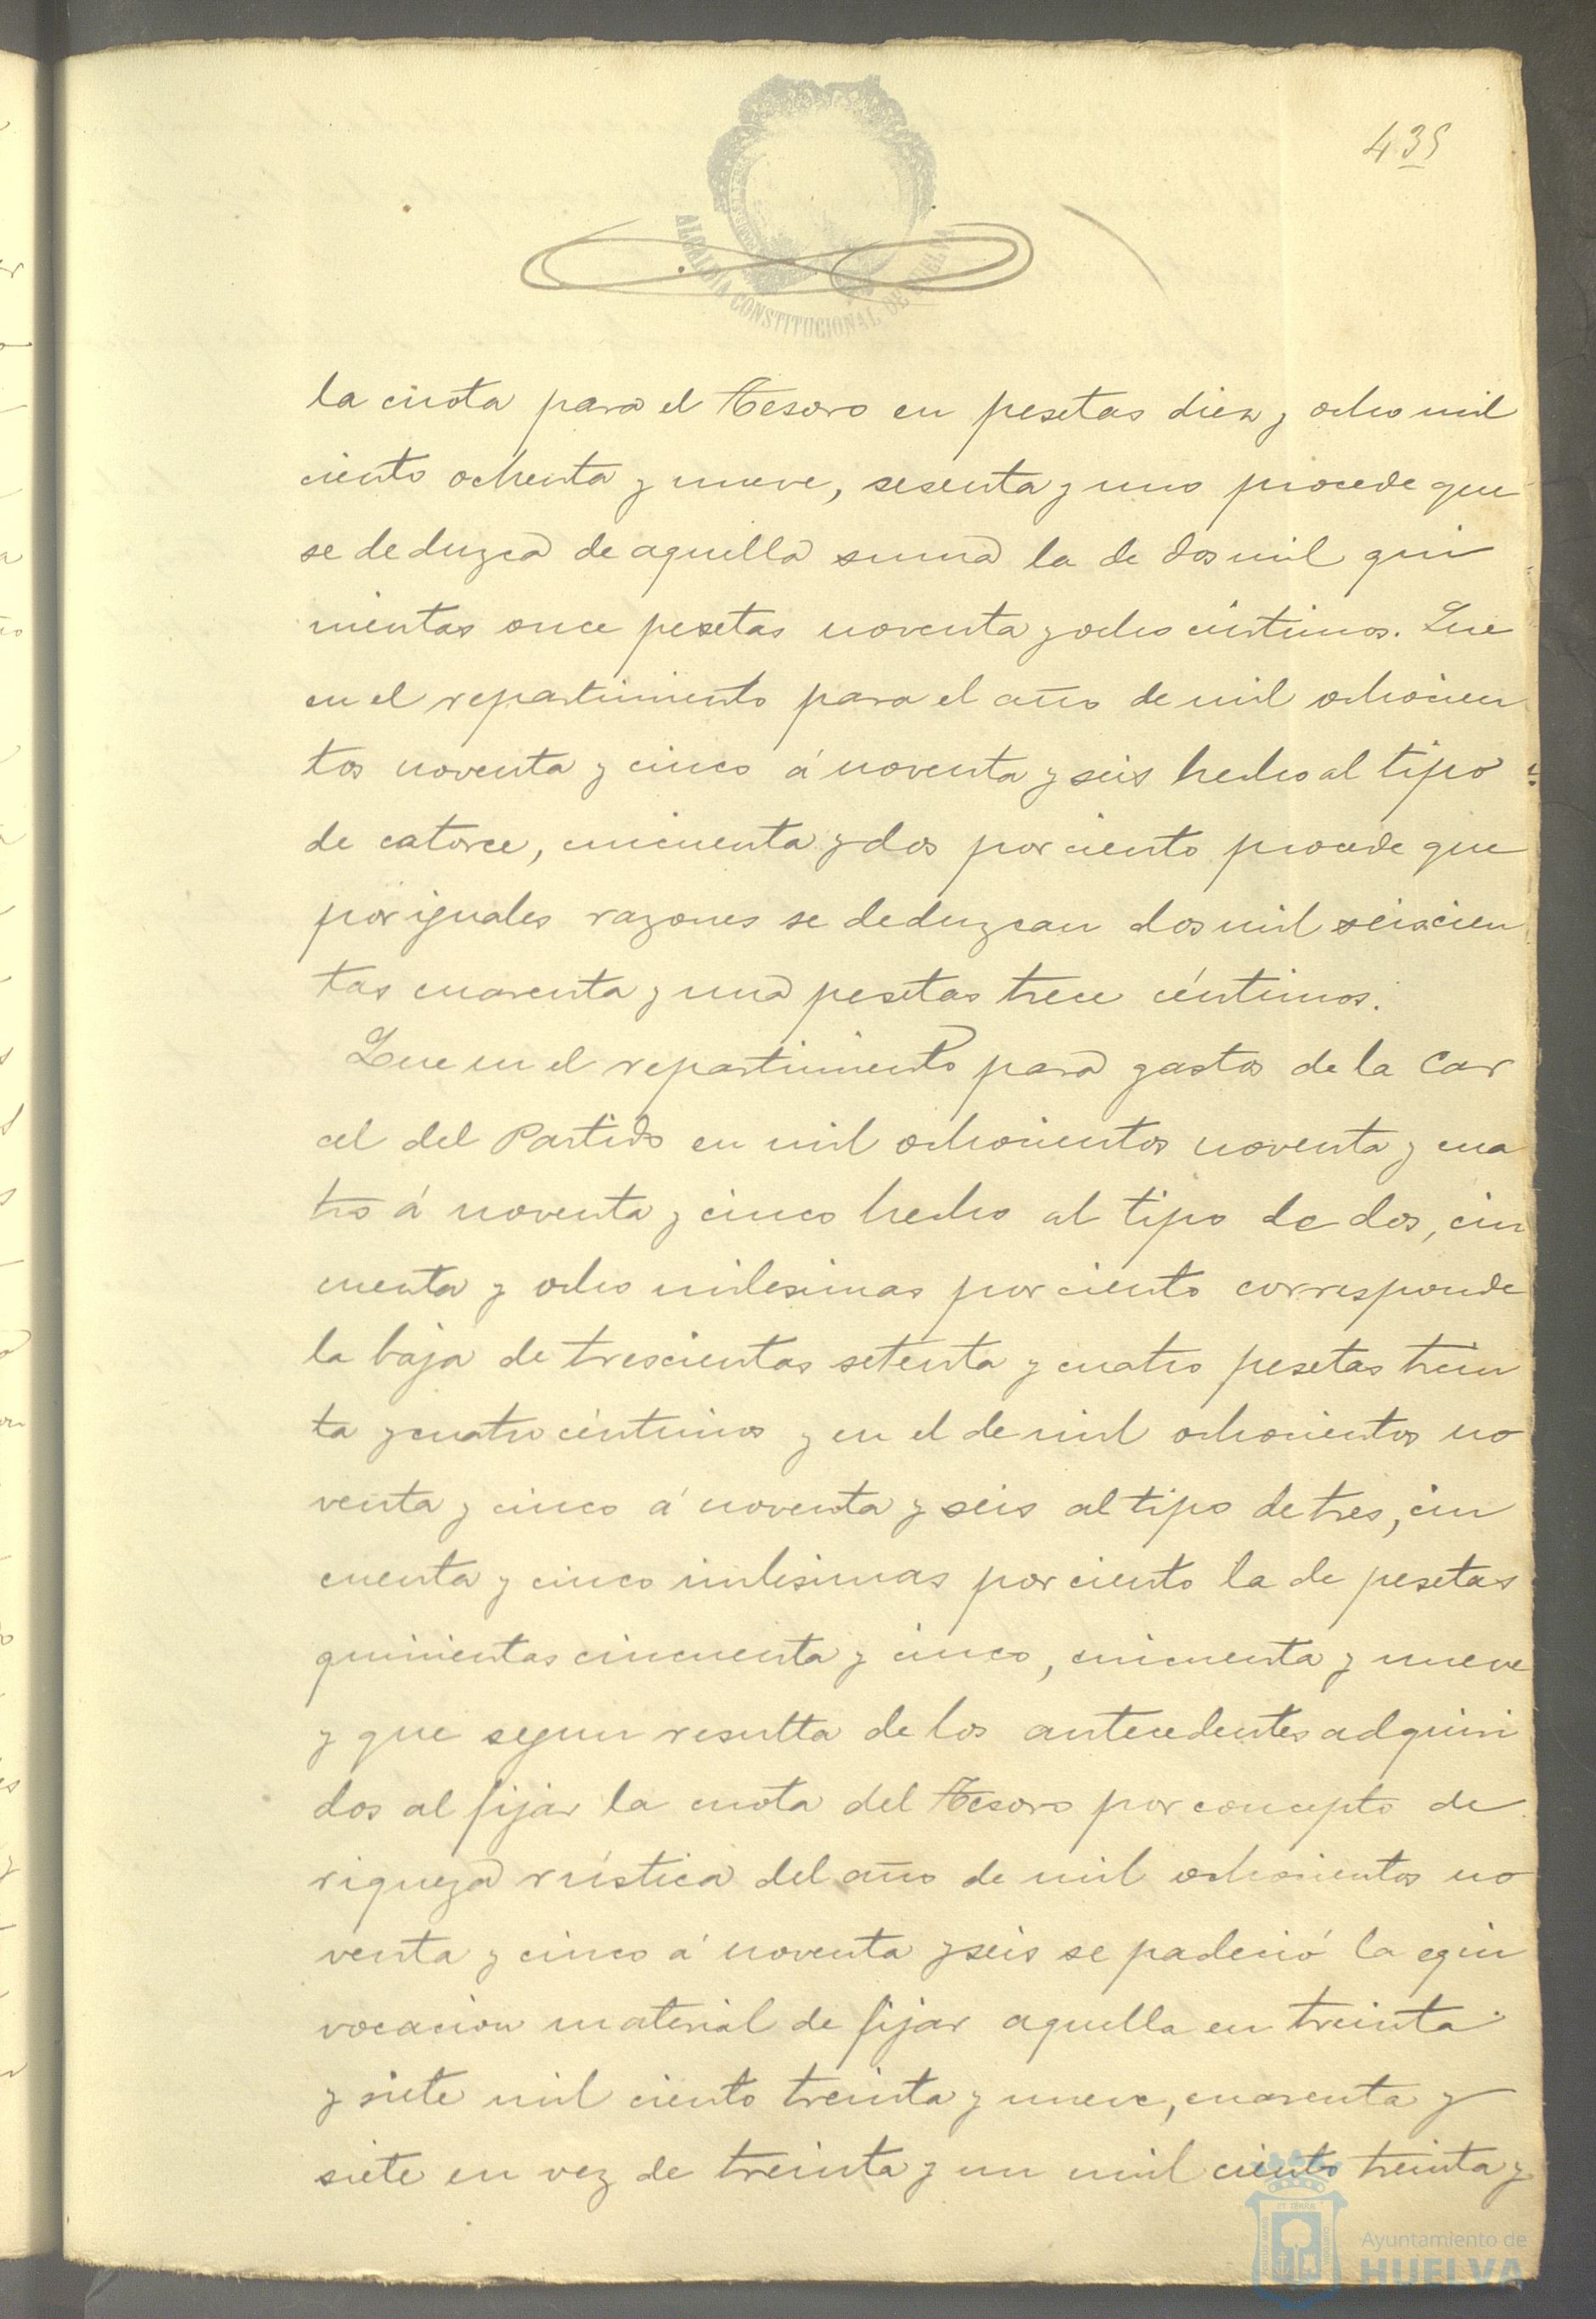 435
ALCALDIA CONSTITUCIONAL DE HUELVA
la cuota para el Tesoro en pesetas diez y ocho mil
ciento ochenta y nueve, sesenta y uno procede que
se deduzca de aquella suma la de dos mil qui
nientas once pesetas noventa y ocho céntimos. Que
en el repartimiento para el año de mil ochocien
tos noventa y cinco á noventa y seis hecho al tipo
de catorce, cincuenta y dos por ciento procede que
por iguales razones se deduzcan dos mil seiscien
tas cuarenta y una pesetas trece céntimos.
Que en el repartimiento para gastos de la Car
cel del Partido en mil ochocientos noventa y cua
tro á noventa y cinco hecho al tipo de dos, cin
cuenta y ocho milesimas por ciento corresponde
la baja de trescientas setenta y cuatro pesetas trein
ta y cuatro céntimos y en el de mil ochocientos no
venta y cinco á noventa y seis al tipo de tres, cin
cuenta y cinco milesimas por ciento la de pesetas
quinientas cincuenta y cinco, cincuenta y nueve
y que segun resulta de los antecedentes adquiri
dos al fijar la cuota del Tesoro por concepto de
riqueza rústica del año de mil ochocientos no
venta y cinco á noventa y seis se padeció la equi
vocacion material de fijar aquella en treinta
y siete mil ciento treinta y nueve, cuarenta y
siete en vez de treinta y un mil ciento treinta y
Ayuntamiento de
HUELVA